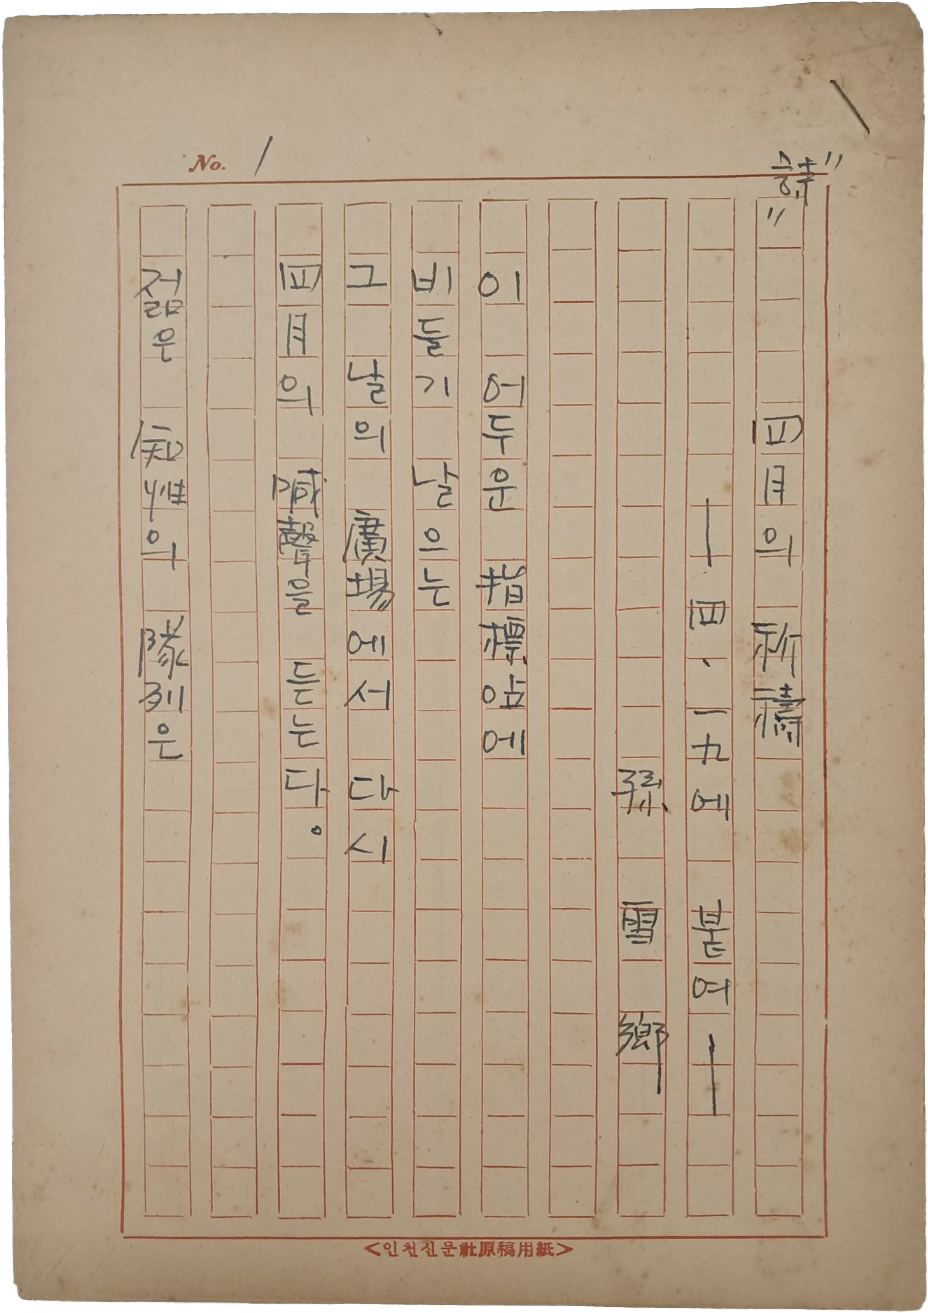 No. 1
"詩"
四月의 祈禱
— 四、一九에 붙여 —
孫 雪 鄕
이 어두운 指標 앞에
비들기 날으는
그 날의 廣場에서 다시
四月의 喊聲을 듣는다。
젊은 知性의 隊列은
<인천신문社原稿用紙>